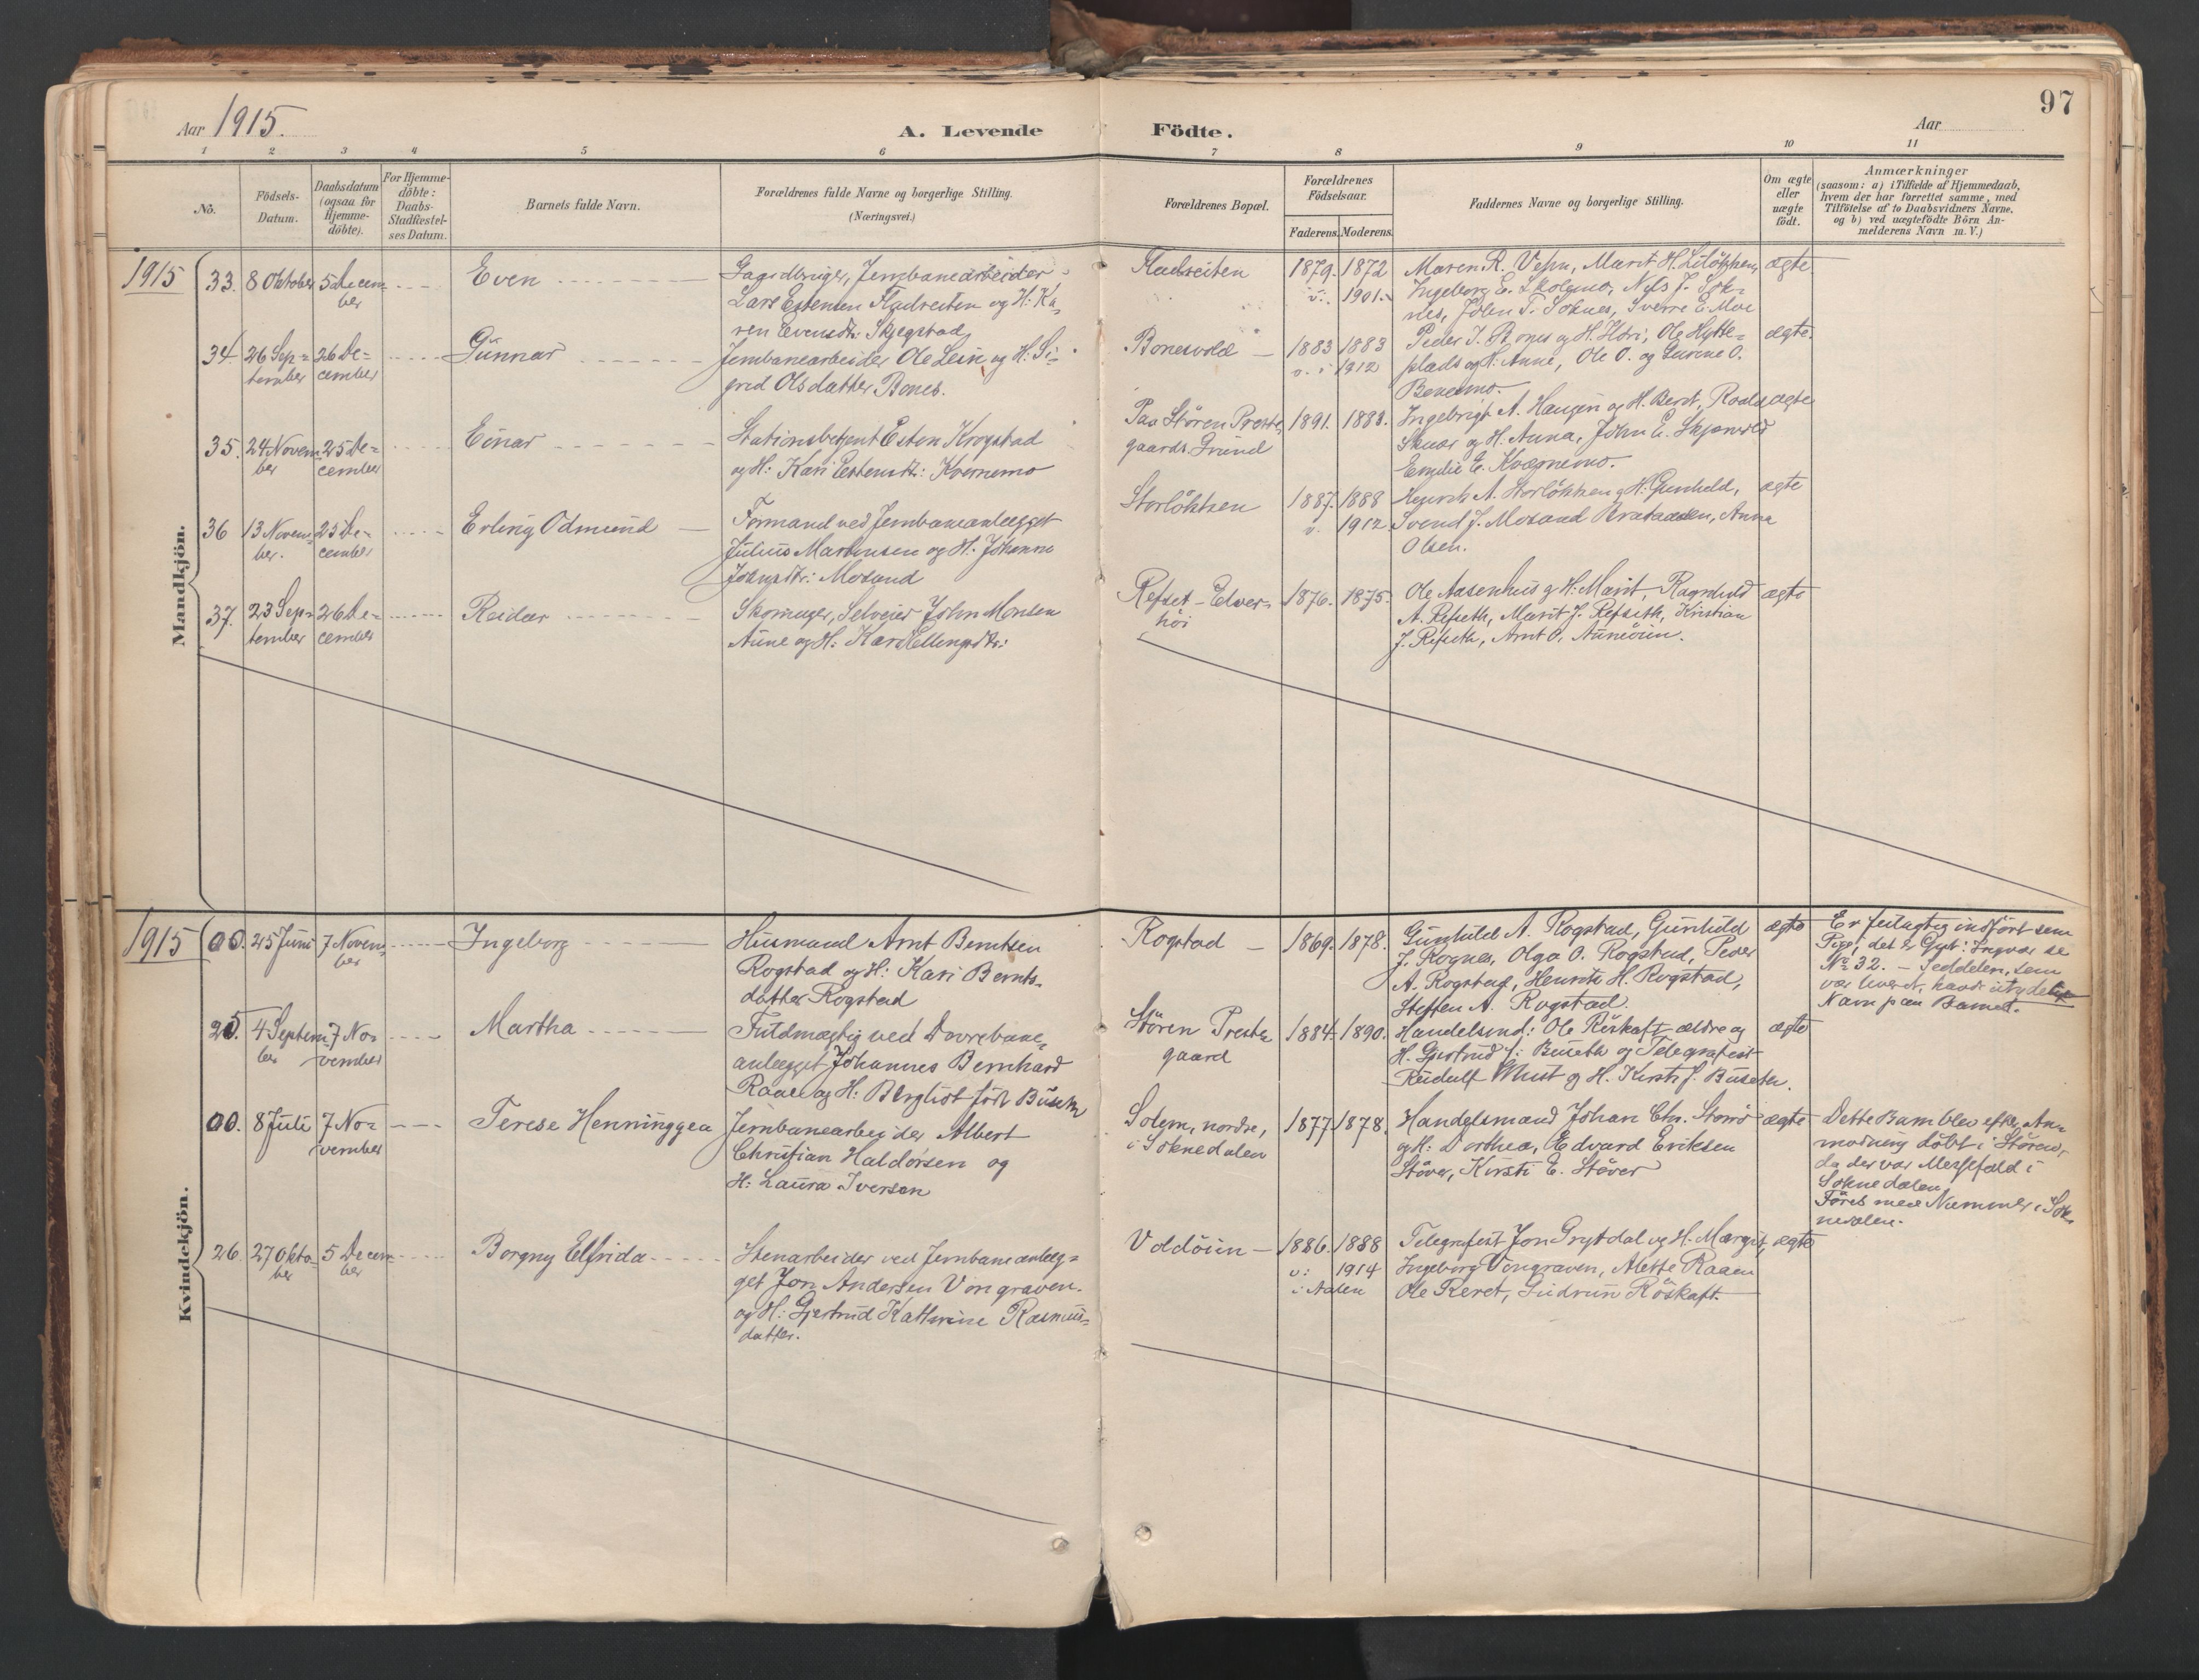 97
Aar 1915.
A. Levende Födte.
Aar
1 2 3 4 5 6 7 8 9 10 11
No.
Födsels-
Datum.
Daabsdatum
(ogsaa for
Hjemme-
döbte).
For Hjemme-
döbte:
Daabs-
Stadfæstel-
ses Datum.
Barnets fulde Navn.
Forældrenes fulde Navne og borgerlige Stilling.
(Næringsvei.)
Forældrenes Bopæl.
Forældrenes
Födselsaar.
Faderens. Moderens.
Faddernes Navne og borgerlige Stilling.
Om ægte
eller
uægte
födt.
Anmærkninger
(saasom: a) i Tilfælde af Hjemmedaab,
hvem der har forrettet samme, med
Tilföielse af to Daabsvidners Navne,
og b) ved uægtefödte Börn An-
melderens Navn m. V.)
Mandkjön.
1915
33. 8 Oktober 5 Decem-
ber
Even
Jernbanearbeider
Lars Estensen Fladreiten og H: Ka-
ren Evensdtr: Skjegstad
Fladreiten
1879. 1872
v: 1901.
Maren R. Vefn, Marit H. Liløkken,
Ingeborg E. Skolgmo, Nils J. Sok-
nes, John T. Soknes, Sverre E. Moe
ægte
34. 26 Sep-
tember
26 De-
cember
Gunnar
Jernbanearbeider Ole Lein og H: Si-
grid Olsdatter Bones.
Bonesvold
1883 1883
v. i 1912
Peder J. Bones og H. Idri, Ole Hytte-
plads og H: Anne, Ole O. og Gurine O.
Bonesmo.
ægte.
35. 24 Novem-
ber
25 De-
cember
Einar
Stationsbetjent Esten Krogstad
og H: Kari Estensdtr: Kvernemo
Paa Stören Preste-
gaards Grund
1891. 1883.
Ingebrigt A. Haugen og H. Berit,
og H. Anna, John E. Skjærvold
Emilie E. Kvernemo.
ægte
36 13 Novem-
ber.
25 De-
cember
Erling Odmund
Formand ved Jernbaneanlægget
Julius Martinsen og H. Johanna
Johnsdtr: Mosand
Storlökken
1887. 1888
v. 1912.
Henrik A. Storlökken og H: Gunhild,
Svend J. Mosand Brataasen, Anna
Olsen.
ægte
37. 23 Sep-
tember
26 De-
cember
Reidar
Skomager, Selveier John Monsen
Aune og H: Kari Ellingsdtr:
Refset - Elver-
höi
1876. 1875.
Ole Aasenhus og H: Marit, Ragnhild
A. Refseth, Marit J. Refseth, Kristian
J. Refseth, Arnt O. Auneöien.
ægte
Kvindekjön.
1915
00. 25 Juni 7 Novem-
ber
Ingeborg
Husmand Arnt Berntsen
Rogstad og H: Kari Bernts-
datter Rogstad
Rogstad
1869. 1878.
Gunhild A. Rogstad, Gunhild
J. Rognes, Olga O. Rogstad, Peder
A. Rogstad, Henrik H. Rogstad,
Steffen A. Rogstad.
ægte
Er feilagtig indfört som
Pige, det er Gut: Ingvar se
No 32. - Seddelen, som
var leveret, havde utydelig
Navn paa Barnet.
25. 4 Septem-
ber
7 No-
vember
Martha
Fuldmægtig ved Dovrebane-
anlægget Johannes Bernhard
Raaen og H: Bergliot född Buseth
Stören Preste-
gaard
1884. 1890.
Handelsmd: Ole Röskaft ældre og
H. Gjertrud f: Buseth og Telegrafist
Rudolf Must og H. Kirsti f. Buseth.
ægte
00. 8 Juli 7 No-
vember
Terese Henninggea
Jernbanearbeider Albert
Christian Haldorsen og
H: Laura Iversen
Solem, nordre,
i Soknedalen
1877. 1878.
Handelsmand Johan Chr. Storrö
og H: Dorthea, Edvard Eriksen
Stöver, Kirsti E. Stöver
ægte
Dette Barn blev efter An-
modning döbt i Stören,
da der var Messefald i
Soknedalen.
Föres med Nummer i Sok-
nedalen.
26. 27 Okto-
ber
5 Decem-
ber
Borgny Elfrida
Stenarbeider ved Jernbaneanlæg-
get Jon Andersen Vongraven
og H: Gjertrud Kathrine Rasmus-
datter.
Voldöien
1886. 1888
v: 1914
i Aalen
Telegrafist Jon Grytdal og H. Margit,
Ingeborg Vongraven, Alette Raaen
Ole Reret, Gudrun Röskaft.
ægte